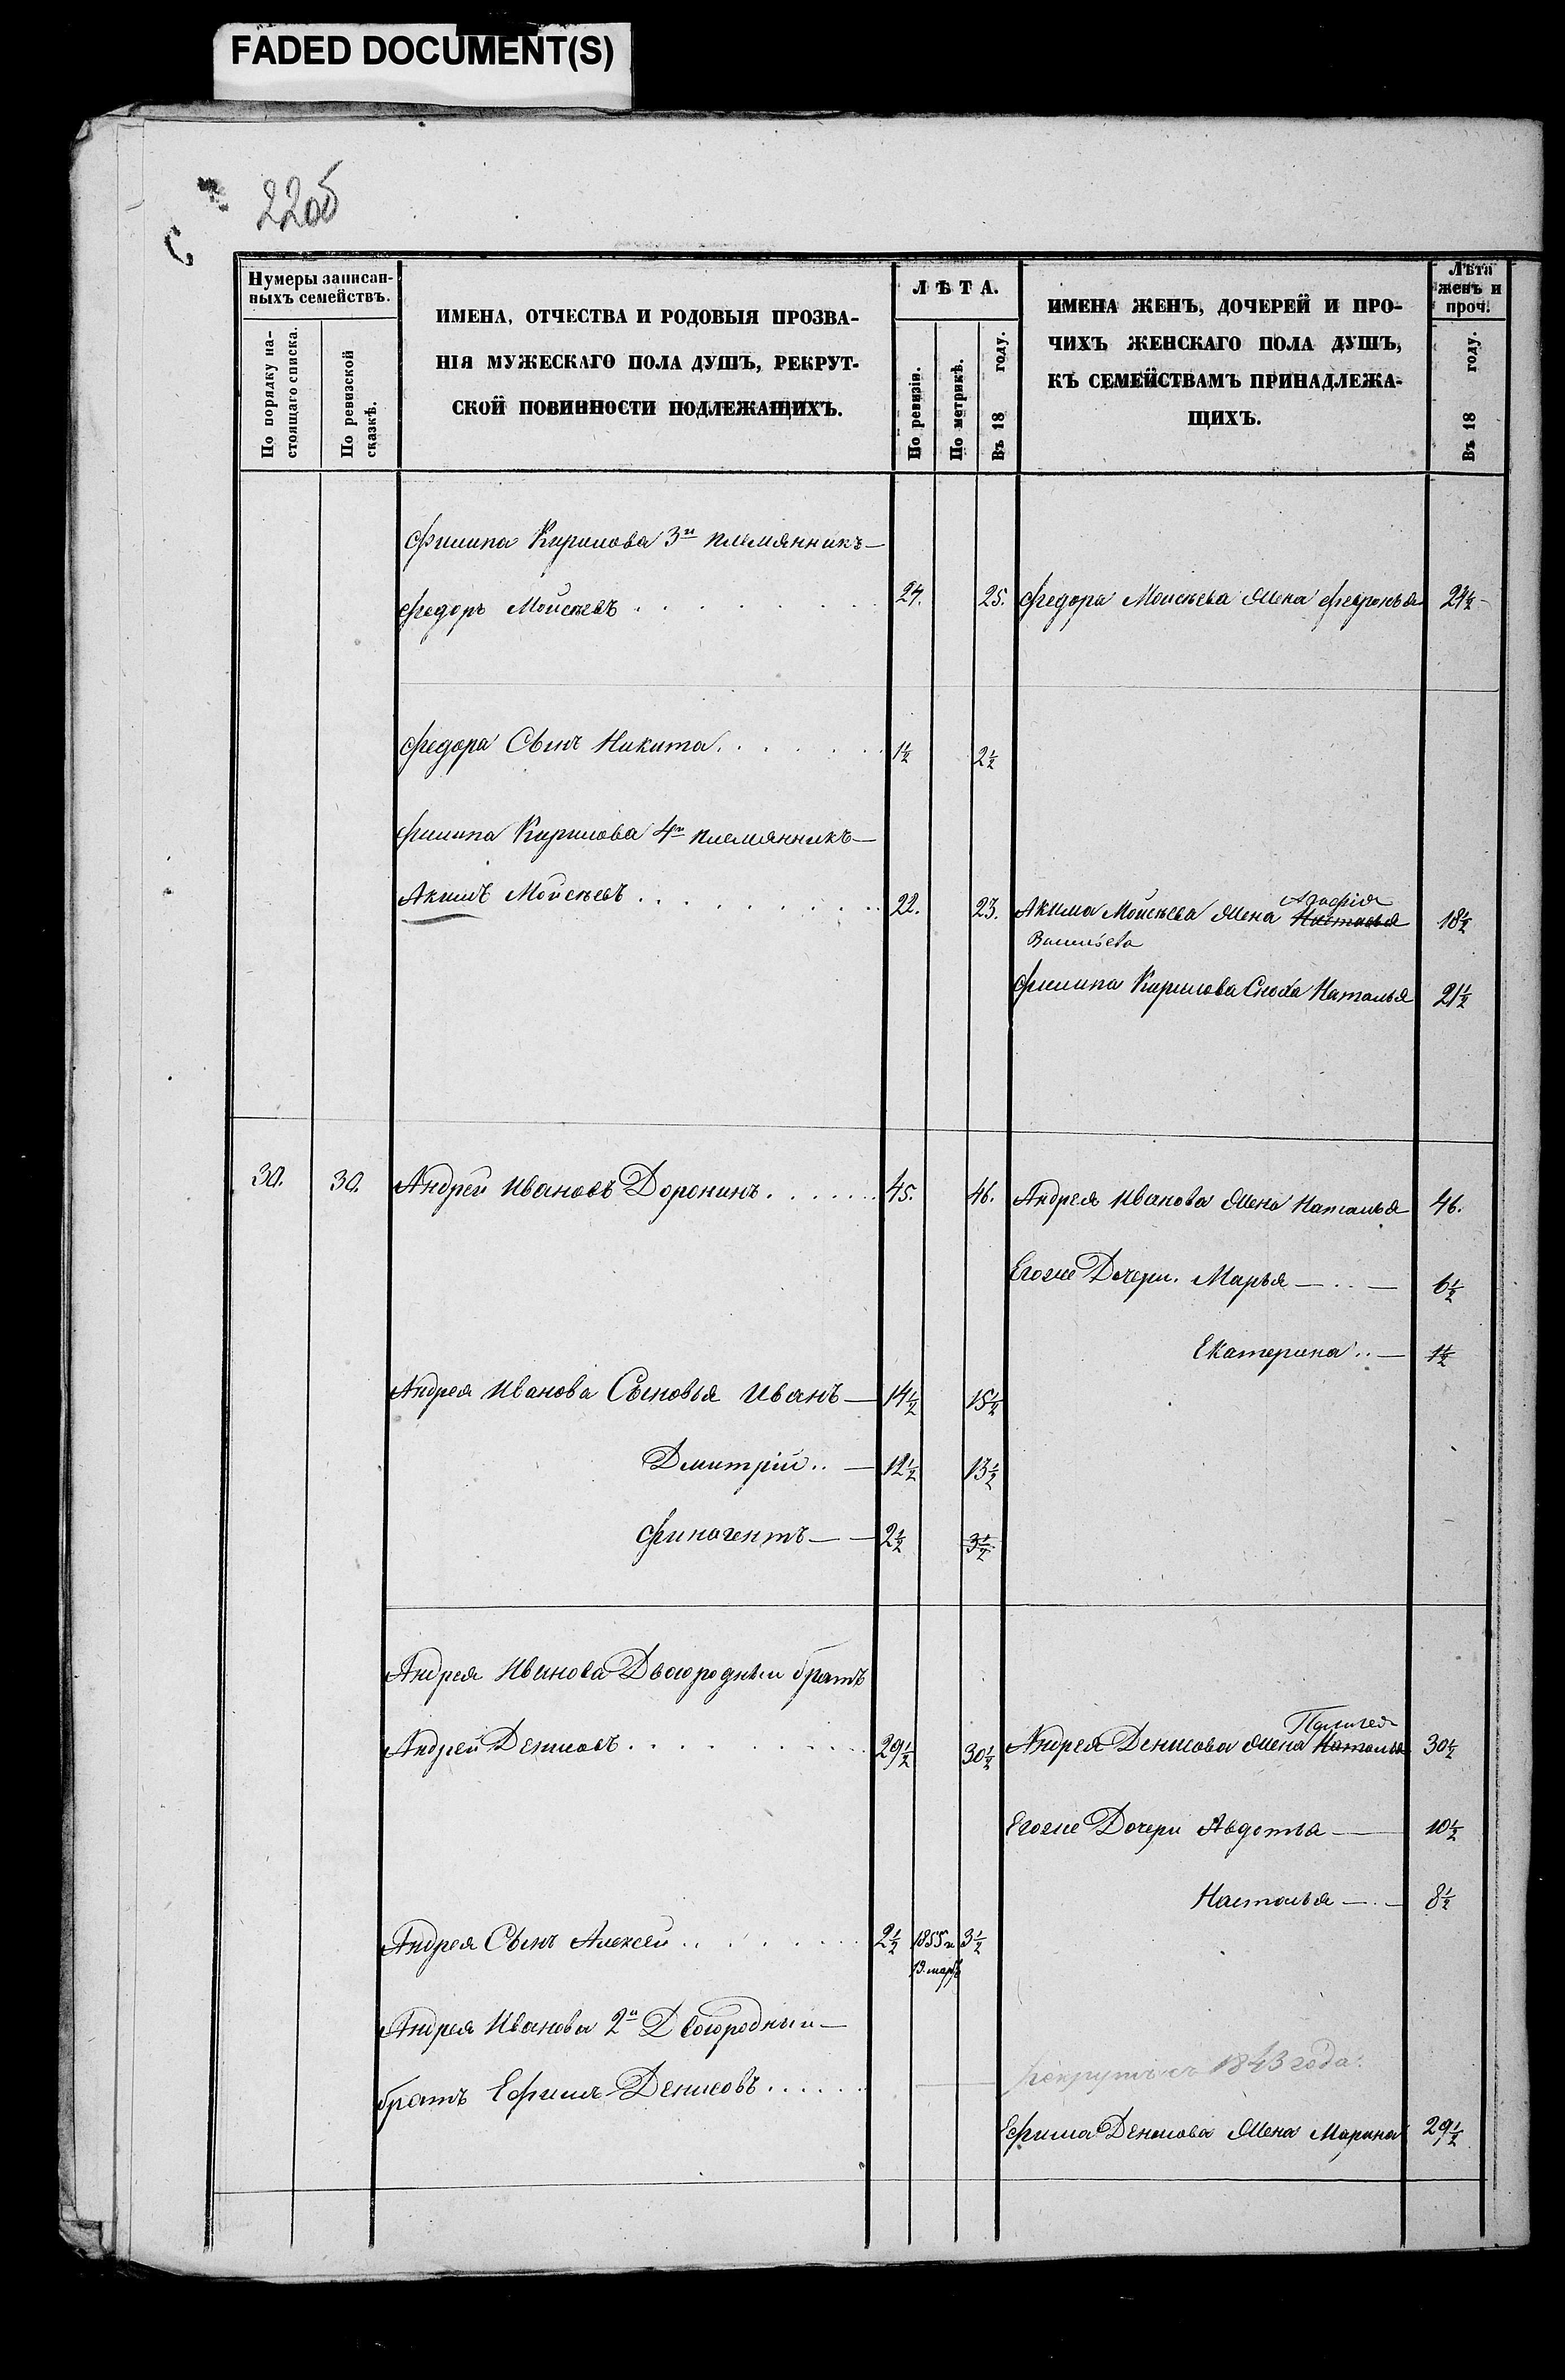 FADED DOCUMENT(S)
22об
Нумеры записан-
ныхъ семействъ.
По порядку на-
стоящаго списка.
По ревизской
сказкѣ.
ИМЕНА, ОТЧЕСТВА И РОДОВЫЯ ПРОЗВА-
НІЯ МУЖЕСКАГО ПОЛА ДУШЪ, РЕКРУТ-
СКОЙ ПОВИННОСТИ ПОДЛЕЖАЩИХЪ.
ЛѢТА.
По ревизіи.
По метрикѣ.
Въ 18 году.
ИМЕНА ЖЕНЪ, ДОЧЕРЕЙ И ПРО-
ЧИХЪ ЖЕНСКАГО ПОЛА ДУШЪ,
КЪ СЕМЕЙСТВАМЪ ПРИНАДЛЕЖА-
ЩИХЪ.
Лѣта
женъ и
проч.
Въ 18 году.
Филипа Кирилова 3й племянникъ—
Федоръ Мойсѣевъ 24. 25. Федора Моисѣева Жена Февронья
Федора Сынъ Никита 1½ 2½
Филипа Кирилова 4й племянникъ—
Акимъ Мойсѣевъ 22. 23. Акима Мойсѣева Жена Настасья 18½
Филипа Кирилова Сноха Наталья 21½
30. 30. Андрей Ивановъ Доронинъ 45. 46. Андрея Иванова Жена Наталья 46.
Егоже Дочери. Марья 6½
Екатерина 1½
Андрея Иванова Сыновья Иванъ— 14½ 15½
Дмитрій 12½ 13½
Финогентъ 2½ 3½
Андрея Иванова Двоюродный братъ
Андрей Денисовъ 29½ 30½ Андрея Денисова Жена Наталья 30½
Егоже Дочери Авдотья 10½
Настасья 8½
Андрея Сынъ Алексей 2½ 1855 г. 3½
13. марта
Андрея Иванова 2й Двоюродный—
братъ Ефимъ Денисовъ рекрутъ съ 1843 года.
Ефима Денисова Жена Марина 29½